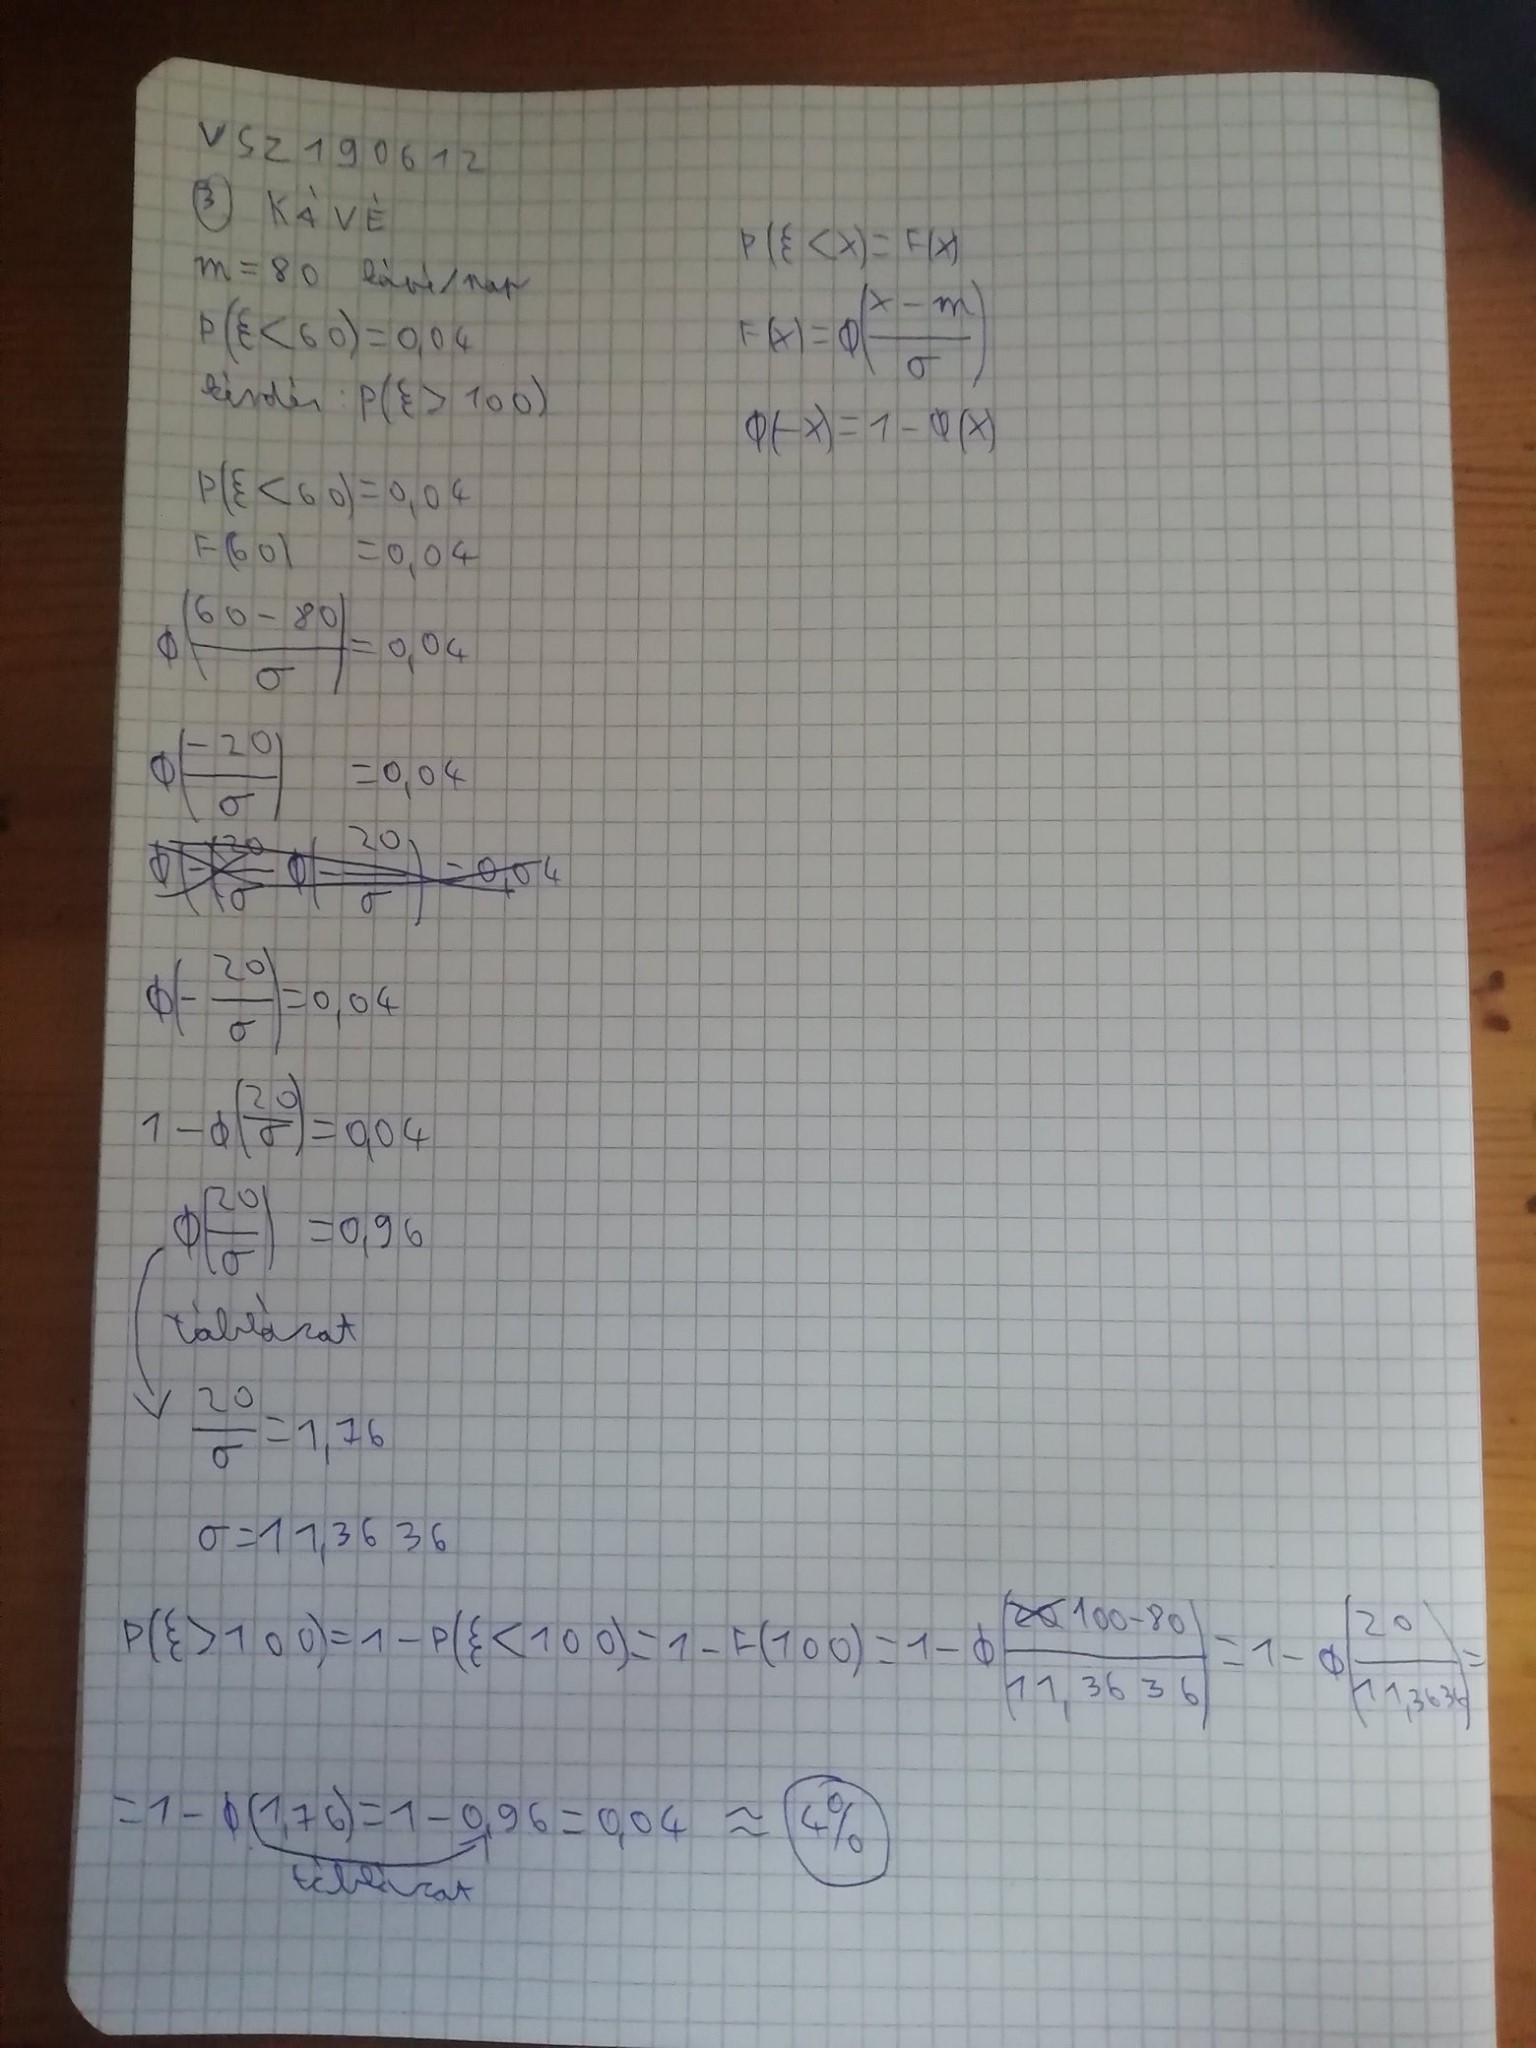 VSZ190612
③ KÁVÉ
m = 80 kávé/nap
P(ξ < 60) = 0,04
kérdés: P(ξ > 100)
P(ξ < x) = F(x)
F(x) = Φ((x - m)/σ)
Φ(-x) = 1 - Φ(x)
P(ξ < 60) = 0,04
F(60) = 0,04
Φ((60 - 80)/σ) = 0,04
Φ((-20)/σ) = 0,04
Φ(-20/σ) = 0,04
1 - Φ(20/σ) = 0,04
Φ(20/σ) = 0,96
táblázat
20/σ = 1,76
σ = 11,3636
P(ξ > 100) = 1 - P(ξ < 100) = 1 - F(100) = 1 - Φ((100-80)/11,3636) = 1 - Φ(20/11,3636) =
= 1 - Φ(1,76) = 1 - 0,96 = 0,04 ≈ 4%
táblázat